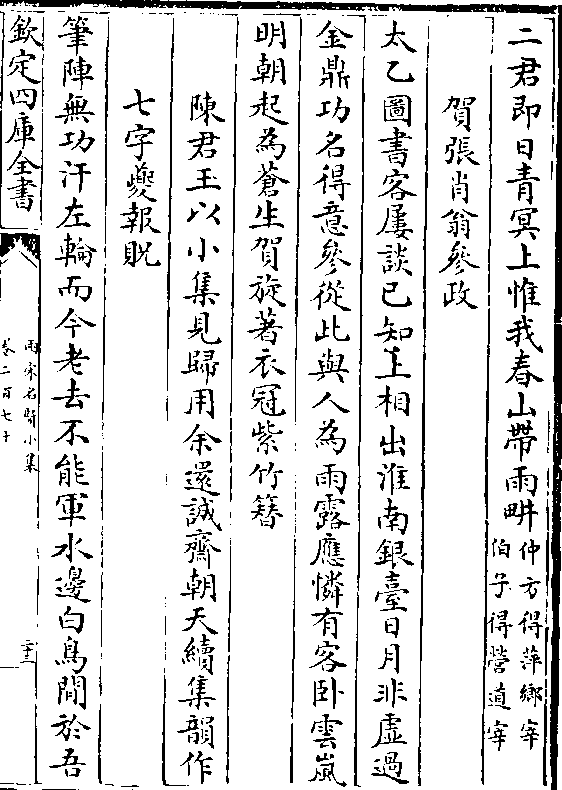 二君即日青冥上惟我春山帶雨畊仲方得萍鄉宰
伯子得營道宰
賀張肖翁參政
太乙圖書客屢談已知上相出淮南銀臺日月非虛過
金鼎功名得意參從此與人為雨露應憐有客卧雲嵐
明朝起為蒼生賀旋著衣冠紫竹簪
陳君玉以小集見歸用余還誠齋朝天續集韻作
七字夔報貺
筆陣無功汗左輪而今老去不能軍水邊白鳥閒於吾
欽定四庫全書
兩宋名賢小集
卷二百七十
二十三